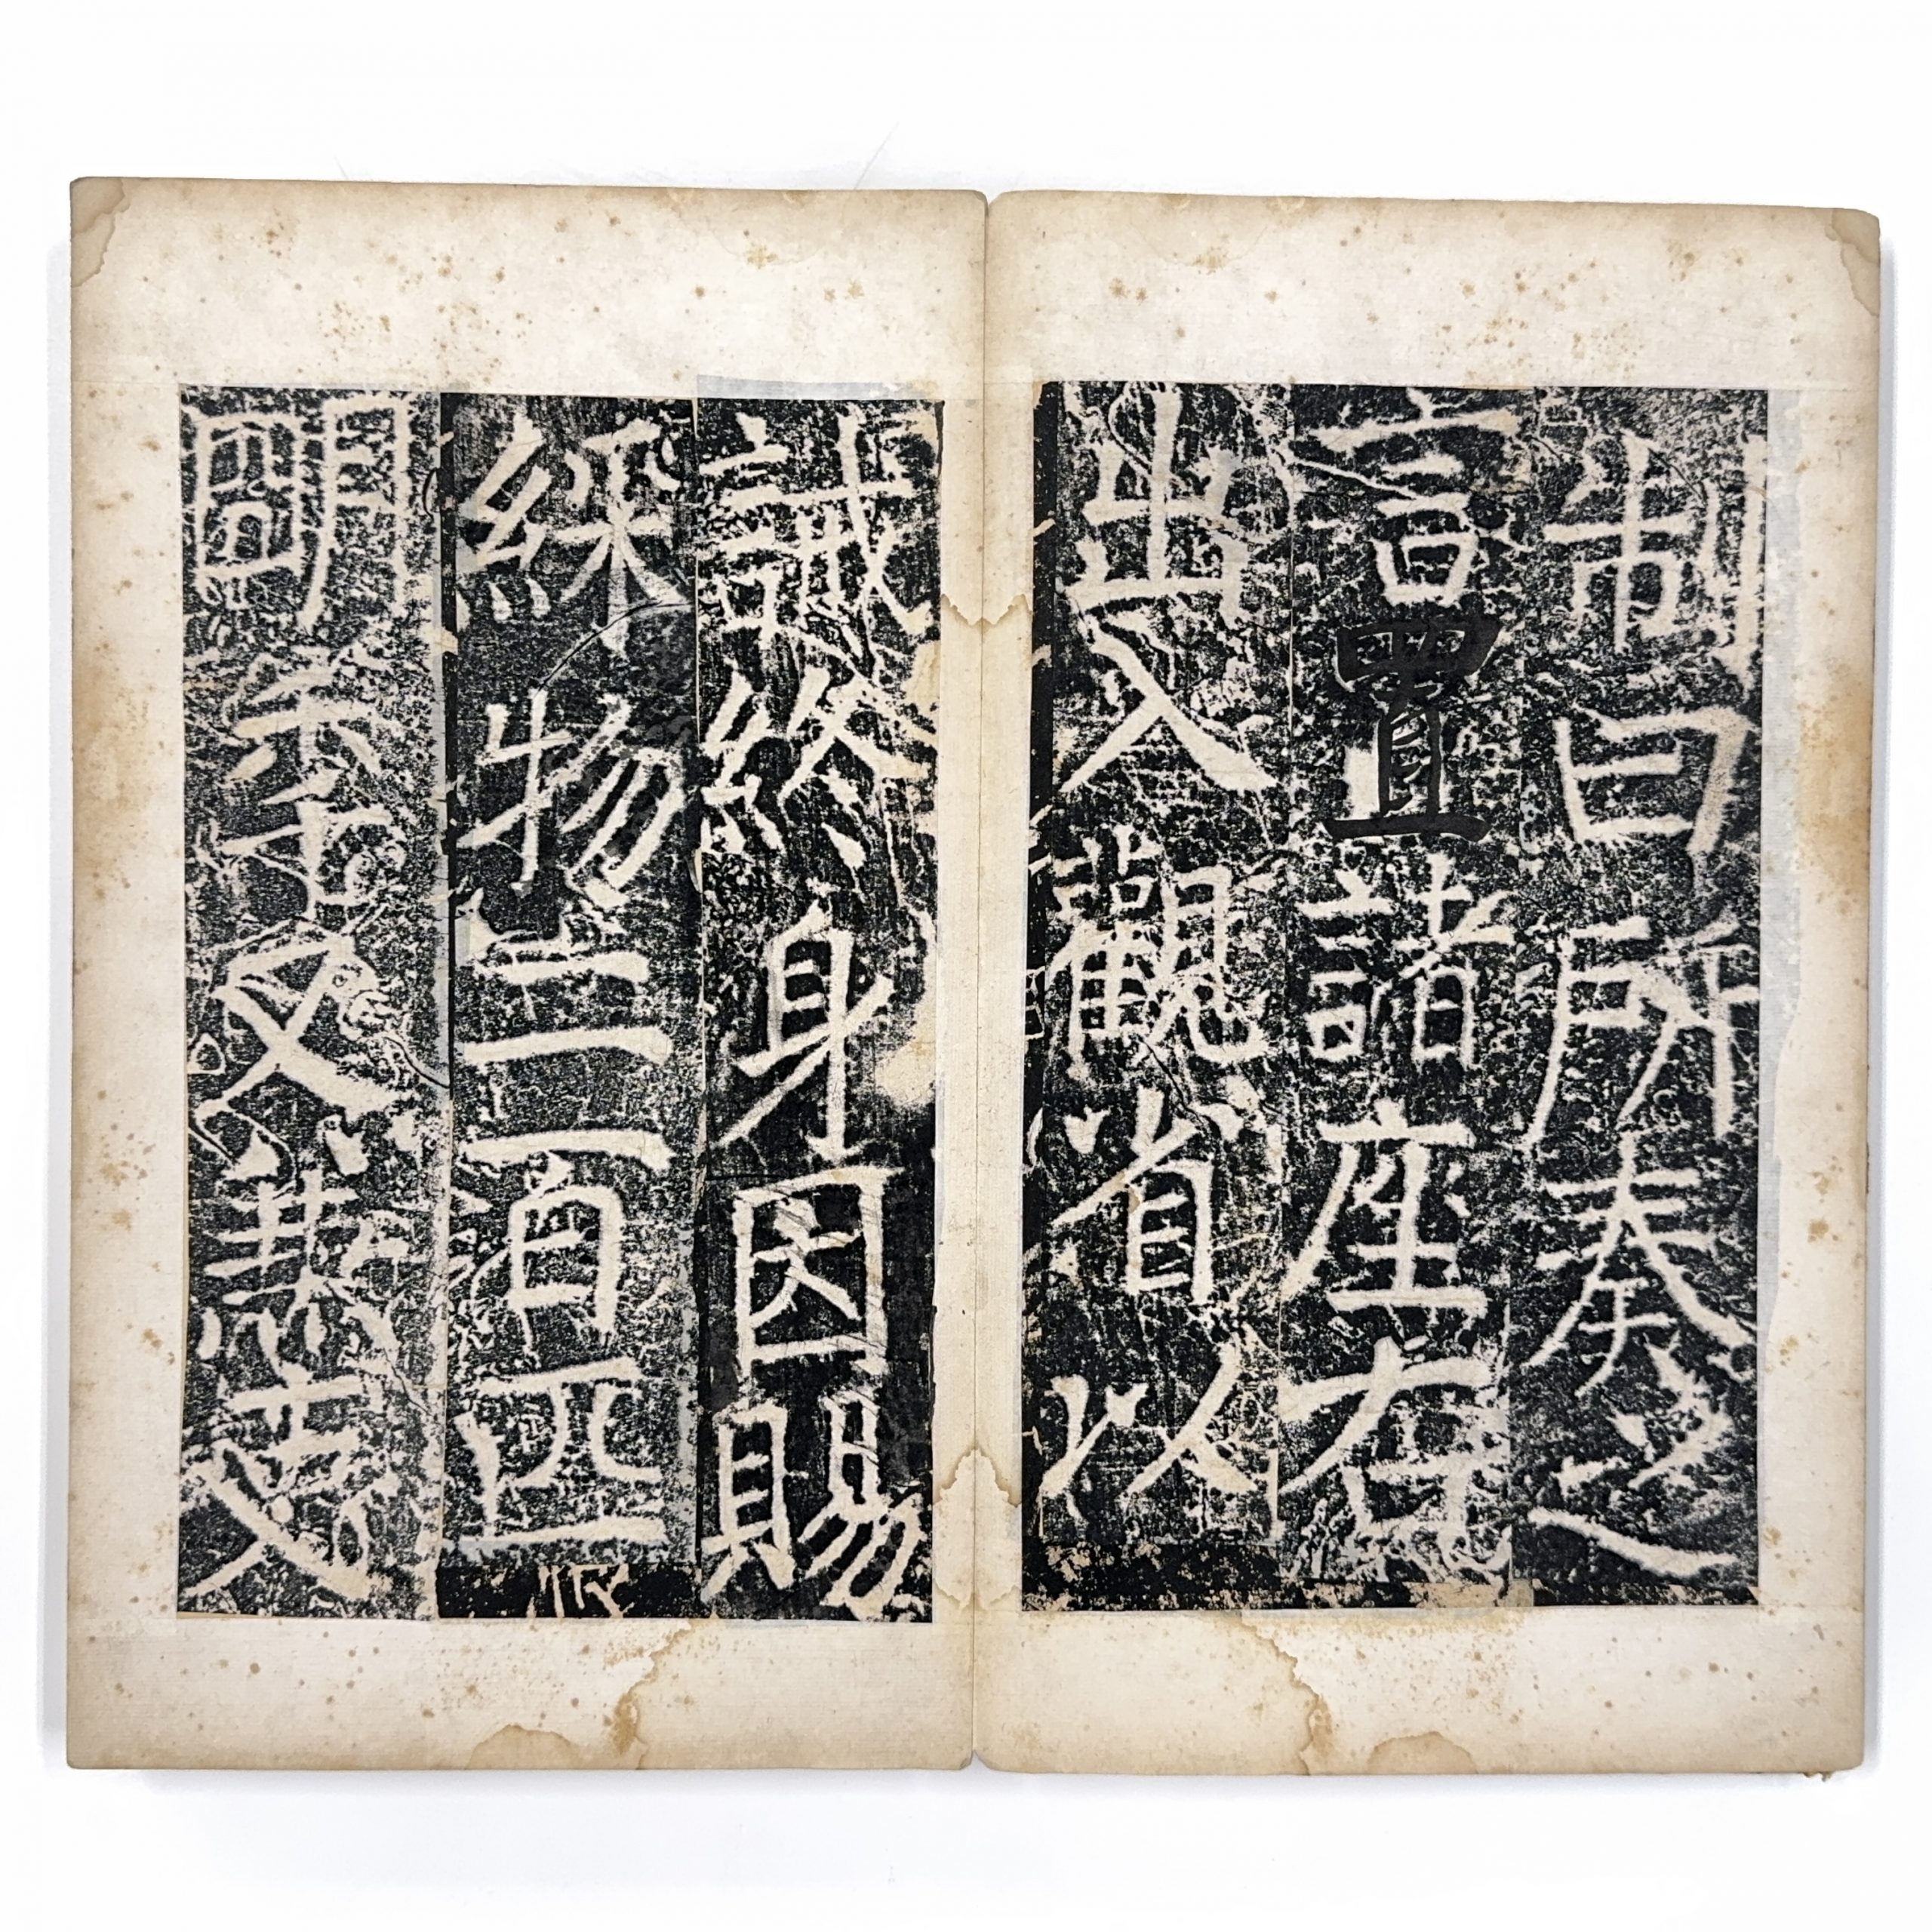 制曰所奏之
言置諸座右
出入觀省以
誡終身因賜
綵物三百匹
明秊又兼吏